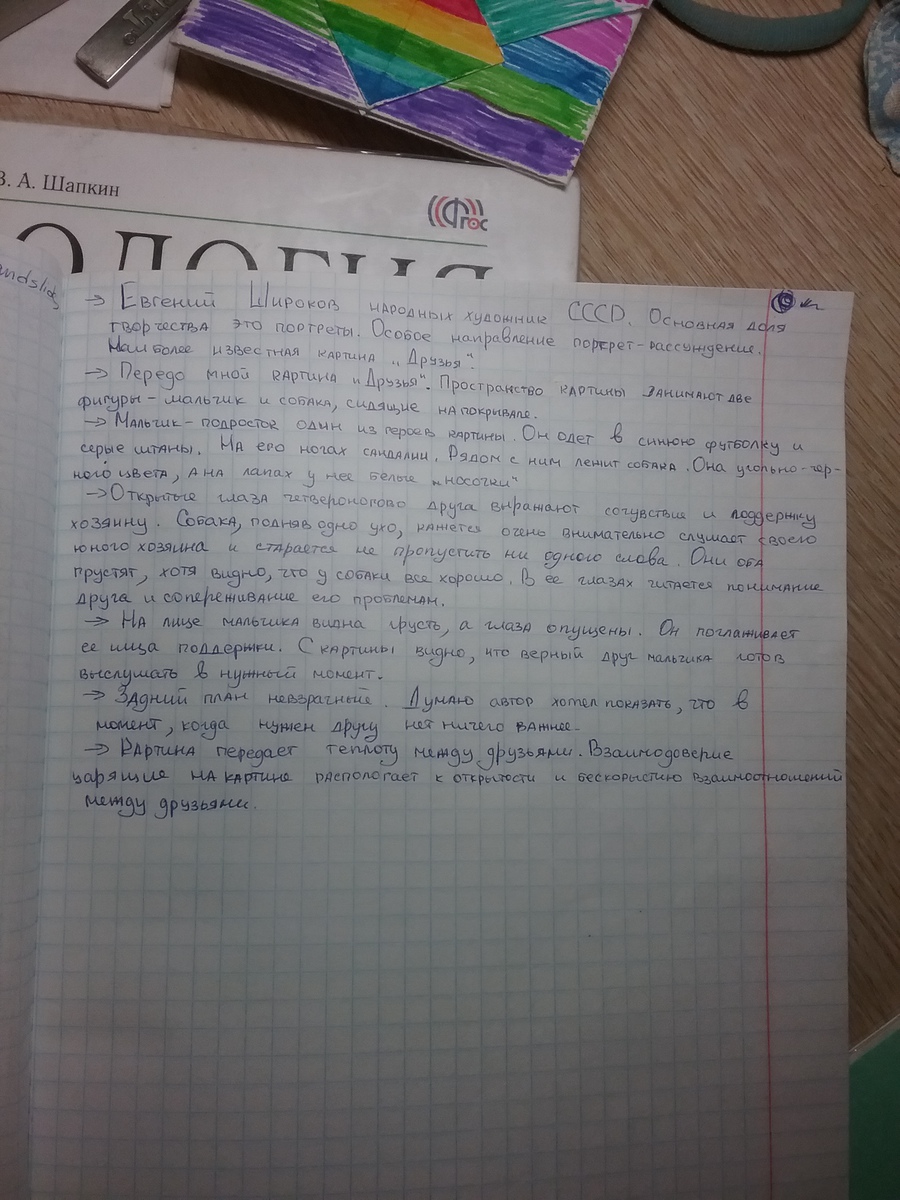 В. А. Шапкин
ФГОС
ОЛОГИЯ
→ Евгений Широков народных художник СССР. Основная доля
творчества это портреты. Особое направление портрет-рассуждение.
Наиболее известная картина „Друзья".
→ Передо мной картина „Друзья". Пространство картины занимают две
фигуры - мальчик и собака, сидящие на покрывале.
→ Мальчик-подросток один из героев картины. Он одет в синюю футболку и
серые штаны. На его ногах сандалии. Рядом с ним лежит собака. Она угольно-чер-
ного цвета, а на лапах у нее белые „носочки"
→ Открытые глаза четвероногово друга выражают сочувствие и поддержку
хозяину. Собака, подняв одно ухо, кажется очень внимательно слушает своего
юного хозяина и старается не пропустить ни одного слова. Они оба
грустят, хотя видно, что у собаки все хорошо. В ее глазах читается понимание
друга и сопереживание его проблемам.
→ На лице мальчика видна грусть, а глаза опущены. Он поглаживает
ее ища поддержки. С картины видно, что верный друг мальчика готов
выслушать в нужный момент.
→ Задний план невзрачный. Думаю автор хотел показать, что в
момент, когда нужен другу нет ничего важнее.
→ Картина передает теплоту между друзьями. Взаимодоверие
царящие на картине распологает к открытости и бескорыстию взаимоотношений
между друзьями.